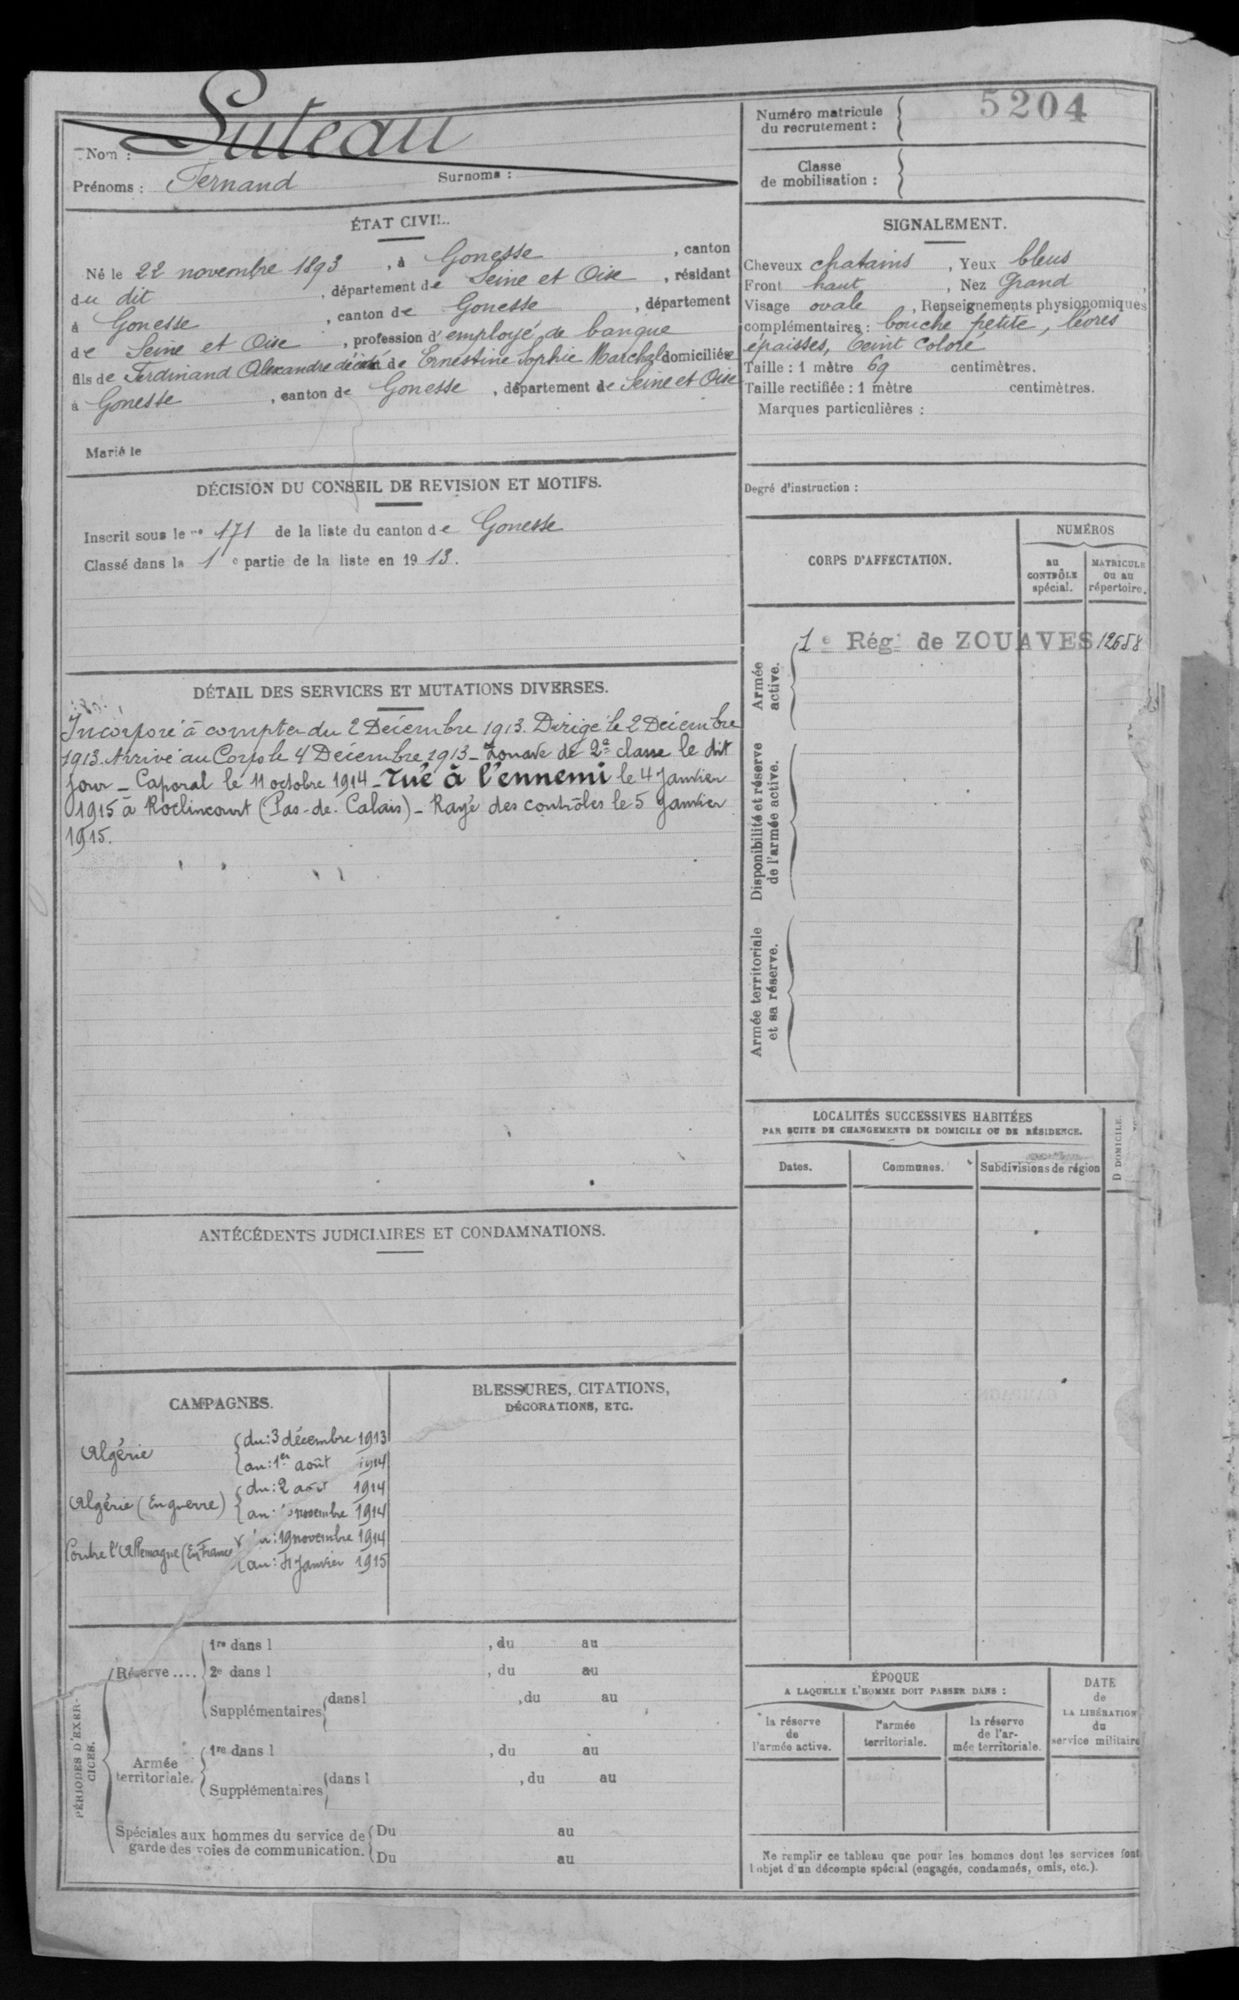 Nom : Luteau
Prénoms : Fernand Surnoms :
Numéro matricule
du recrutement :
5204
Classe
de mobilisation :
ÉTAT CIVIL.
Né le 22 novembre 1893, à Gonesse, canton
du dit, département de Seine et Oise, résidant
à Gonesse, canton de Gonesse, département
de Seine et Oise, profession d'employé de banque
fils de Ferdinand Alexandre décédé et de Ernestine Sophie domiciliée
à Gonesse, canton de Gonesse, département de Seine et Oise
Marié le
SIGNALEMENT.
Cheveux chatains, Yeux bleus
Front haut, Nez Grand,
Visage ovale, Renseignements physionomiques
complémentaires : bouche petite, lèvres
épaisses, teint coloré
Taille : 1 mètre 69 centimètres.
Taille rectifiée : 1 mètre centimètres.
Marques particulières :
Degré d'instruction :
DÉCISION DU CONSEIL DE REVISION ET MOTIFS.
Inscrit sous le no 171 de la liste du canton de Gonesse
Classé dans la 1e partie de la liste en 1913.
CORPS D'AFFECTATION.
NUMÉROS
au
CONTRÔLE
spécial.
MATRICULE
ou au
répertoire.
Armée
active.
1e Régt de ZOUAVES 12658
Disponibilité et réserve
de l'armée active.
Armée territoriale
et sa réserve.
DÉTAIL DES SERVICES ET MUTATIONS DIVERSES.
Incorporé à compter du 2 Décembre 1913. Dirigé le 2 Décembre
1913. Arrivé au Corps le 4 Décembre 1913 - Zouave de 2e classe le dit
jour - Caporal le 11 octobre 1914 - Tué à l'ennemi le 4 Janvier
1915 à Roclincourt (Pas-de-Calais) - Rayé des contrôles le 5 Janvier
1915.
LOCALITÉS SUCCESSIVES HABITÉES
PAR SUITE DE CHANGEMENTS DE DOMICILE OU DE RÉSIDENCE.
Dates.
Communes.
Subdivisions de région
D DOMICILE.
ANTÉCÉDENTS JUDICIAIRES ET CONDAMNATIONS.
CAMPAGNES.
Algérie
du : 3 décembre 1913
au : 1er août 1914
Algérie (En guerre)
du : 2 août 1914
au : novembre 1914
Contre l'Allemagne (En France)
du : 19 novembre 1914
au : 4 janvier 1915
BLESSURES, CITATIONS,
DÉCORATIONS, ETC.
PÉRIODES D'EXER-
CICES.
Réserve ....
1re dans l , du au
2e dans l , du au
Supplémentaires dans l , du au
Armée
territoriale.
1re dans l , du au
Supplémentaires dans l , du au
Spéciales aux hommes du service de
garde des voies de communication.
Du au
Du au
ÉPOQUE
A LAQUELLE L'HOMME DOIT PASSER DANS :
la réserve
de
l'armée active.
l'armée
territoriale.
la réserve
de l'ar-
mée territoriale.
DATE
de
LA LIBÉRATION
du
service militaire
Ne remplir ce tableau que pour les hommes dont les services font
l'objet d'un décompte spécial (engagés, condamnés, omis, etc.).